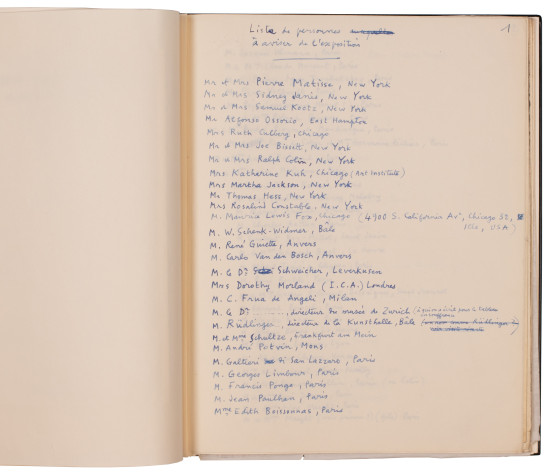 1
Liste de personnes
à aviser de l'exposition
Mr et Mrs Pierre Matisse, New York
Mr et Mrs Sidney Janis, New York
Mr et Mrs Samuel Kootz, New York
Mr Alfonso Ossorio, East Hampton
Mrs Ruth Callery, Chicago
Mr et Mrs Joe Bissett, New York
Mr et Mrs Ralph Colin, New York
Mrs Katharine Kuh, Chicago (Art Institute)
Mrs Martha Jackson, New York
Mr Thomas Hess, New York
Mrs Rosalind Constable, New York
M. Maurice Lewis Fox, Chicago (4900 S. California Av, Chicago 32,
Ill., USA)
M. W. Schenk-Widmer, Bâle
M. René Guiette, Anvers
M. Carlo Van den Bosch, Anvers
M. G Dr Schweicher, Leverkusen
Mrs Dorothy Morland (I.C.A.) Londres
M. C. Frua de Angeli, Milan
M. G Dr , directeur du musée de Zurich
M. Rüdlinger, directeur de la Kunsthalle, Bâle
M. et Mme Schultze, Frankfurt am Mein
M. André Potvin, Mons
M. Galtieri di San Lazzaro, Paris
M. Georges Limbour, Paris
M. Francis Ponge, Paris
M. Jean Paulhan, Paris
Mme Edith Boissonnas, Paris